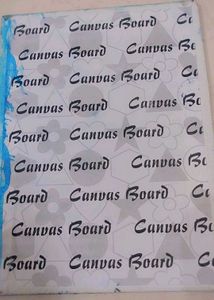 Board Canvas Board C
Canvas Board Canvas Bo
Board Canvas Board Ca
Canvas Board Canvas Bo
Board Canvas Board Ca
Canvas Board Canvas B
Board Canvas Board Ca
Canvas Board Canvas B
Board Canvas Board Ca
Canvas Board Canvas
Board Canvas Board C